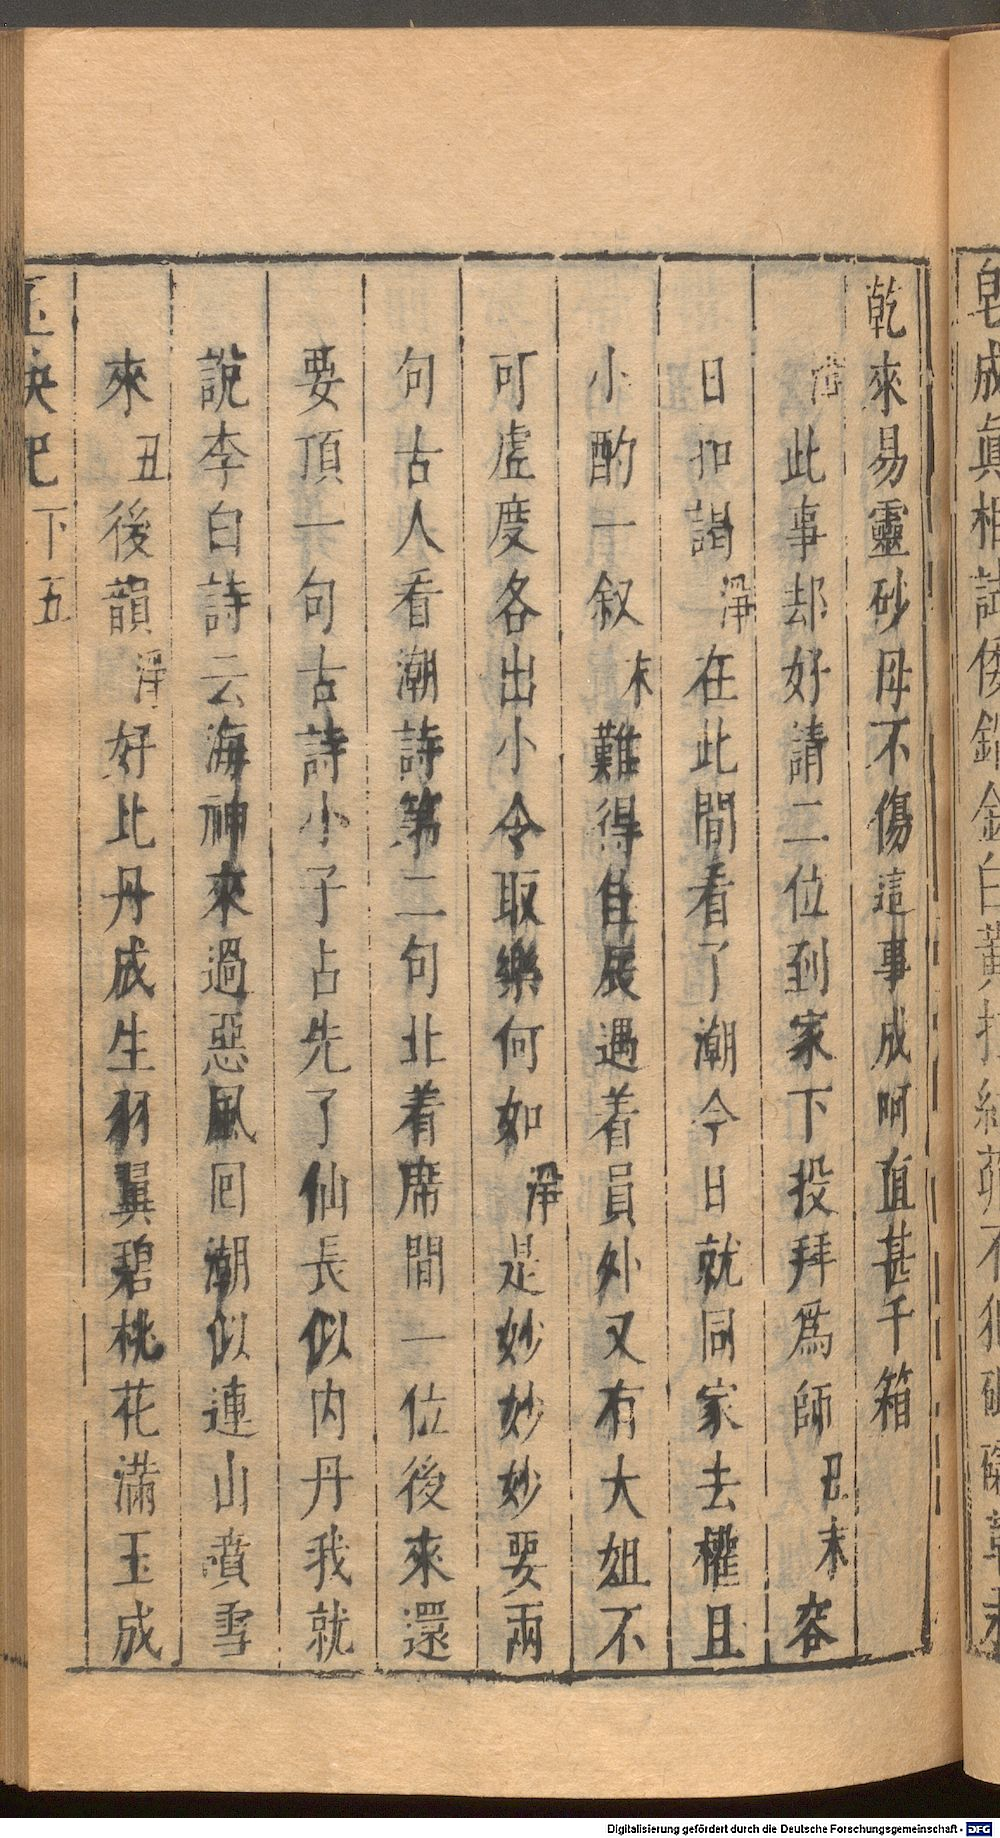 皂成眞相
乾來易靈砂母不傷這事成呵直甚千箱
此事却好請二位到家下投拜爲師丑末容
日扣謁淨在此間看了潮今日就同家去權且
小酌一叙末難得自展遇着員外又有大姐不
可虛度各出小令取樂何如淨是妙妙妙要兩
句古人看潮詩第二句北着席間一位後來還
要頂一句古詩小子占先了仙長似内丹我就
說李白詩云海神來過惡風回潮似連山噴雪
來丑後韻淨好比丹成生羽翼碧桃花滿玉成
玉玦記下五
Digitalisierung gefördert durch die Deutsche Forschungsgemeinschaft - DFG